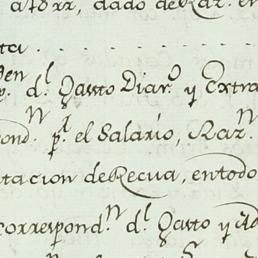 dado de Raz.ⁿ
ta. . . . . . . . . .
d.ˡ Gasto Diar.º y Extra
pond.ⁿ p.ˡ el Salario, Raz.ⁿ
tacion de Recua, en todo
correspond.ⁿ d.ˡ Gasto y